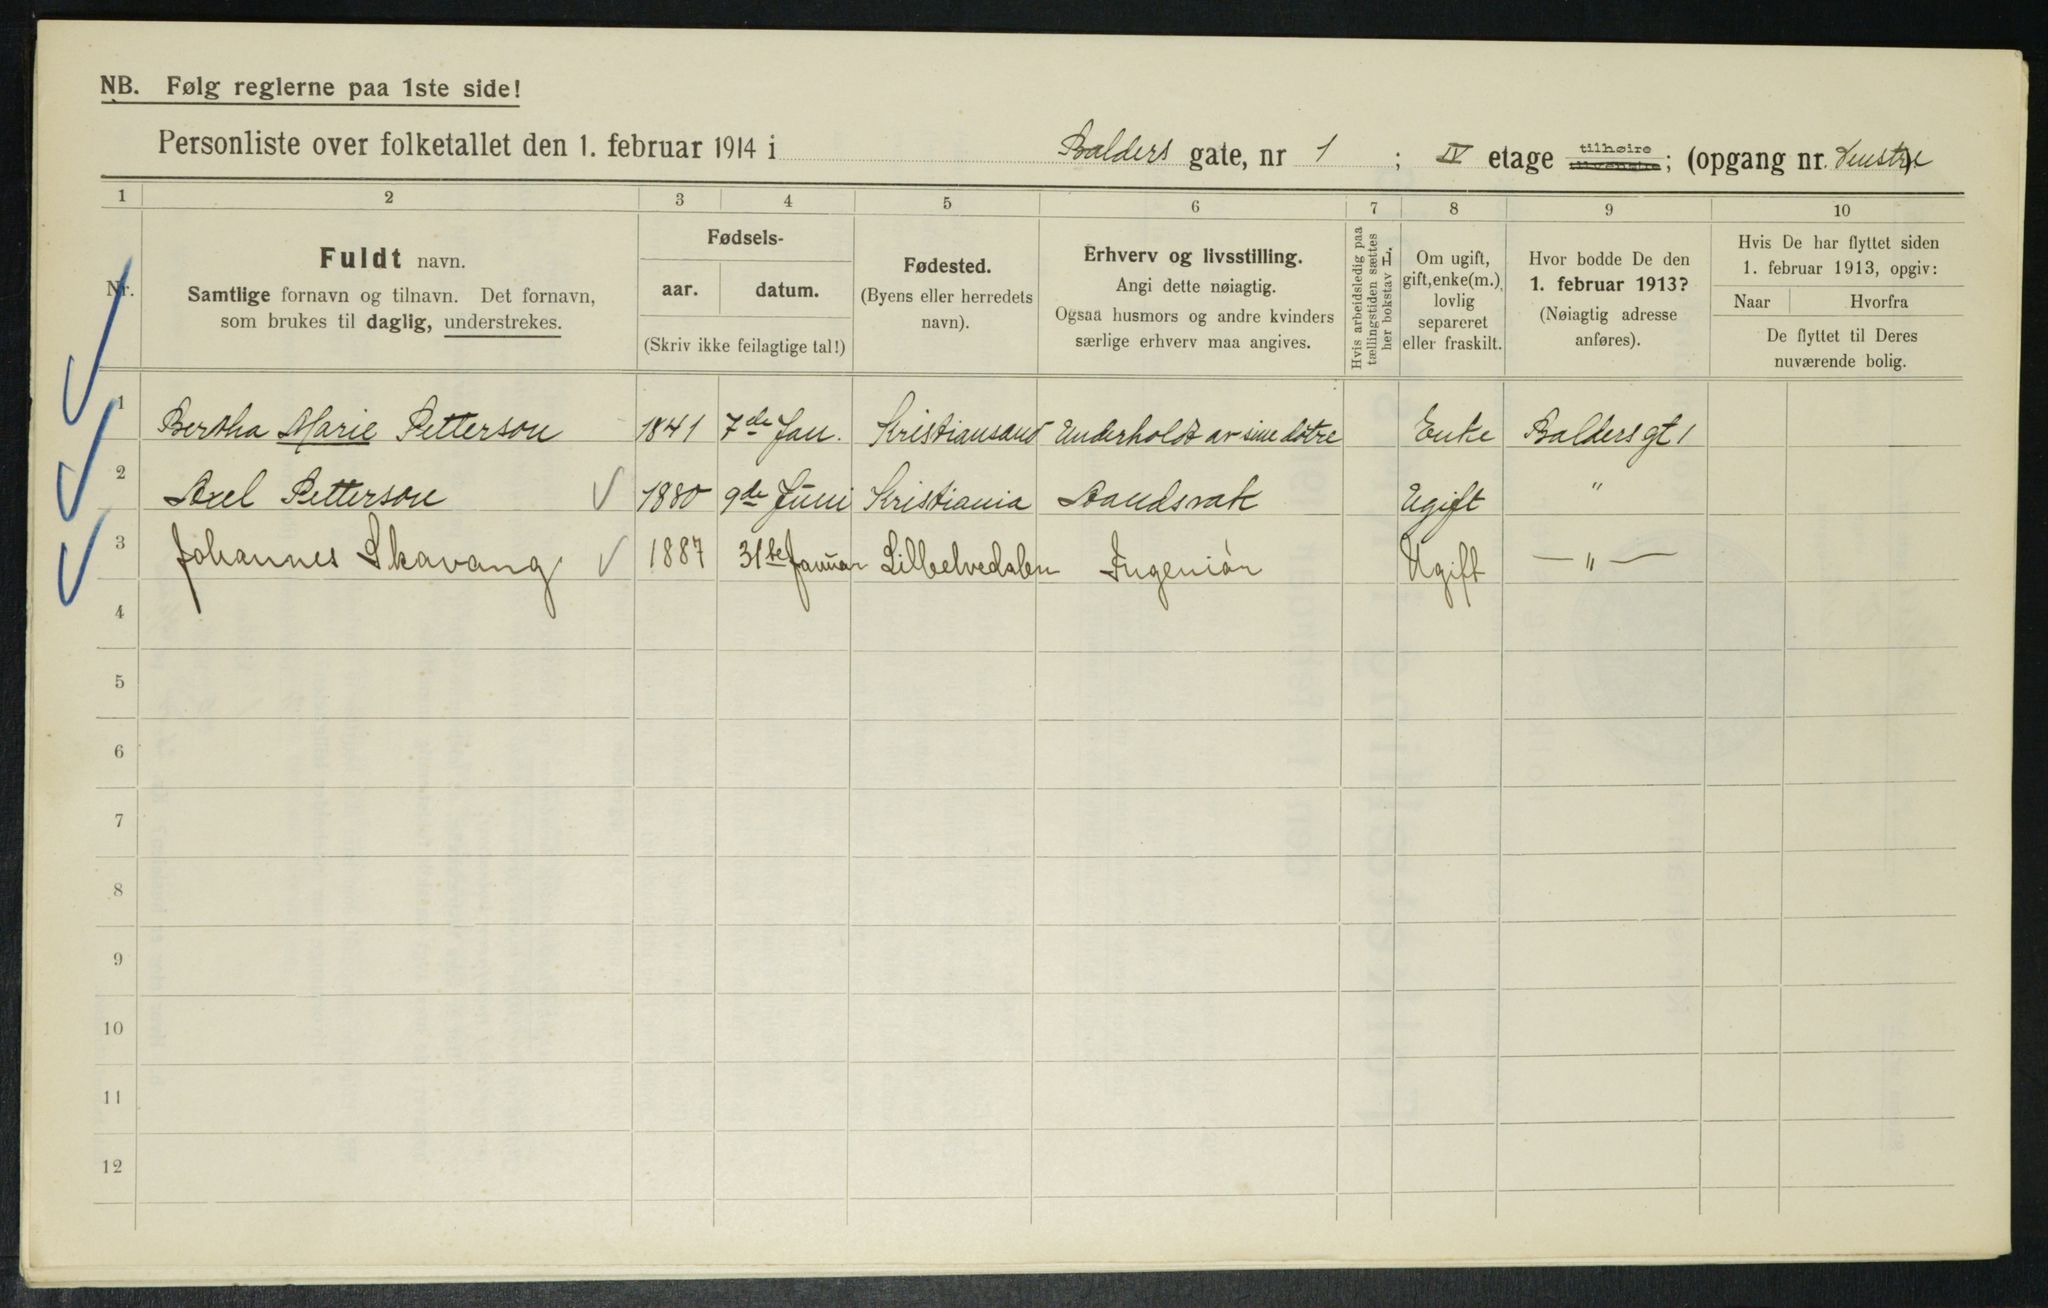 NB. Følg reglerne paa 1ste side!
Personliste over folketallet den 1. februar 1914 i Balders gate, nr 1 ; IV etage tilhøire tilvenstre; (opgang nr. Venstre)
1 2 3 4 5 6 7 8 9 10
Nr.
Fuldt navn.
Samtlige fornavn og tilnavn. Det fornavn,
som brukes til daglig, understrekes.
Fødsels-
aar. datum.
(Skriv ikke feilagtige tal!)
Fødested.
(Byens eller herredets
navn).
Erhverv og livsstilling.
Angi dette nøiagtig.
Ogsaa husmors og andre kvinders
særlige erhverv maa angives.
Hvis arbeidsledig paa
tællingstiden sættes
her bokstav L.
Om ugift,
gift, enke(m.),
lovlig
separeret
eller fraskilt.
Hvor bodde De den
1. februar 1913?
(Nøiagtig adresse
anføres).
Hvis De har flyttet siden
1. februar 1913, opgiv:
Naar Hvorfra
De flyttet til Deres
nuværende bolig.
1 Bertha Marie Petterson 1841 7de Jan. Kristiansand Underholdt av sine døtre Enke Baldersgt 1
2 Axel Petterson 1880 9de Juni Kristiania Enke Ugift "
3 Johannes Skavang 1887 31te Januar Ingeniør Ugift — " —
4
5
6
7
8
9
10
11
12